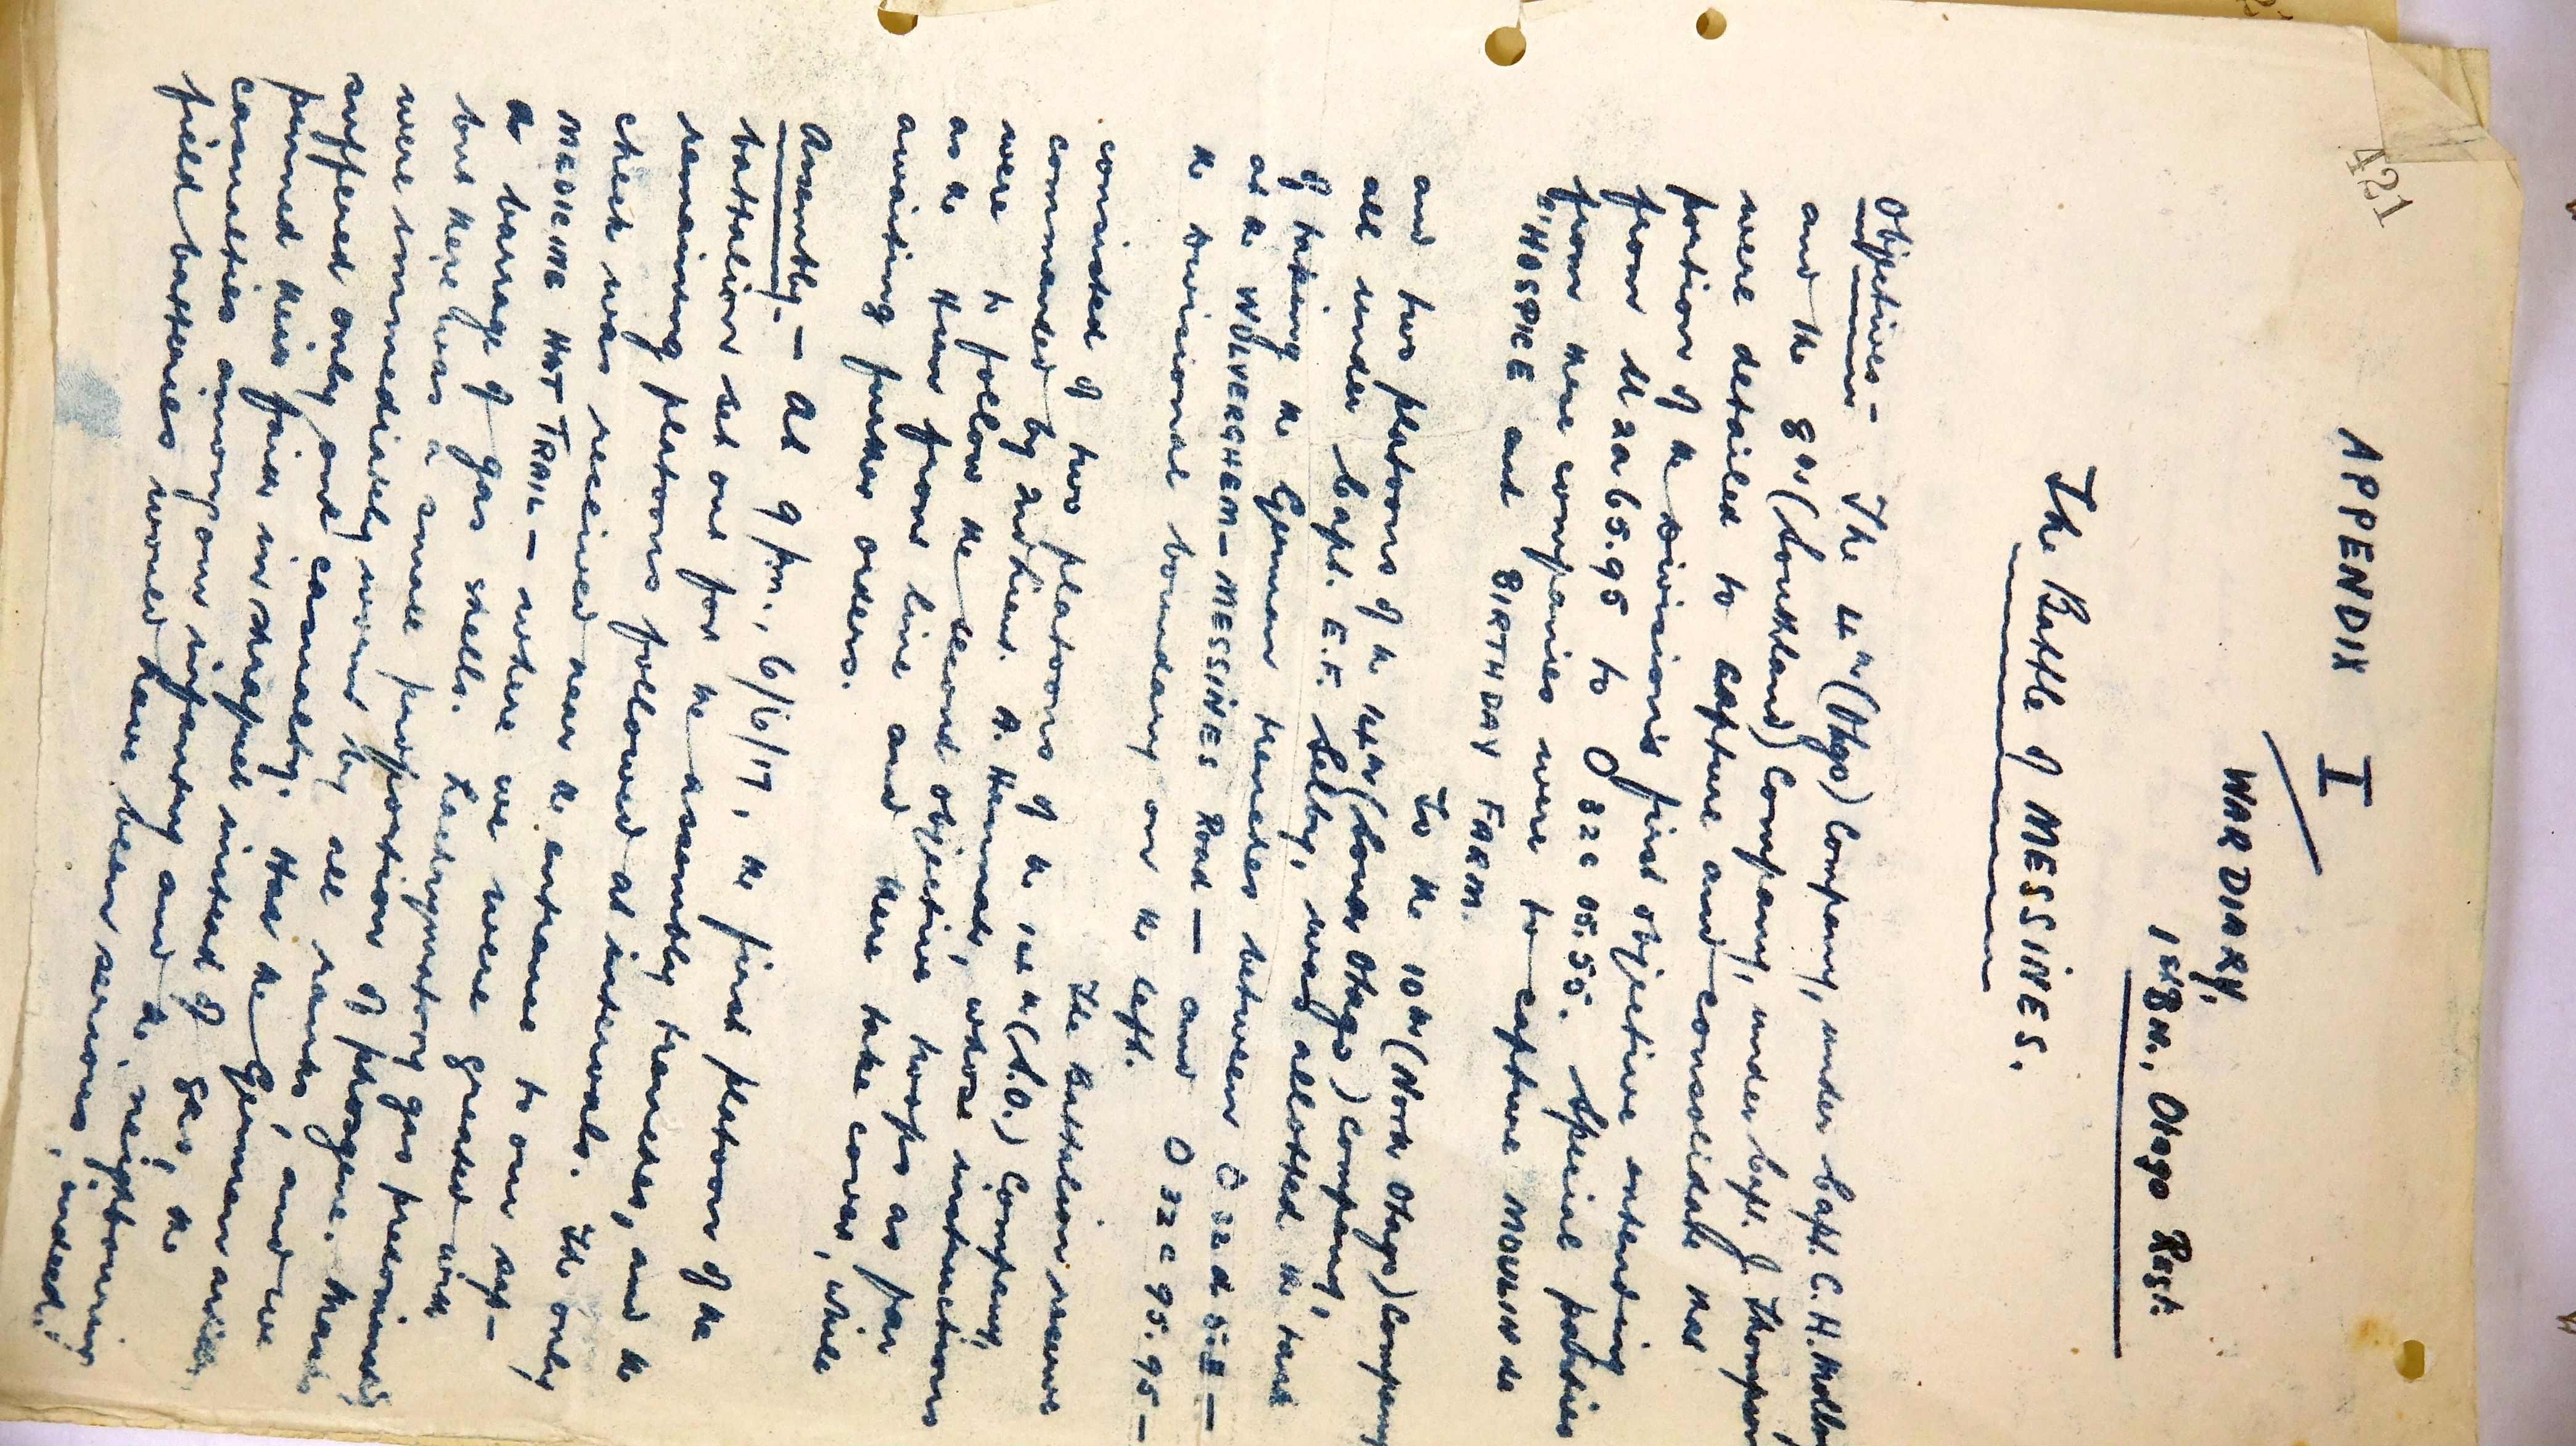 421
APPENDIX I
WAR DIARY,
1st Bn., Otago Regt.
The Battle of MESSINES.
Objectives - The 4th (Otago) Company, under Capt. C.H. Molloy
and the 8th (Southland) Company, under Capt. J. Thompson
were detailed to capture and consolidate that
portion of the division's first objective extending
from U 2a 65.95 to O 32c 05.55. Special parties
from these companies were to capture MOULIN de
L'HOSPICE and BIRTHDAY FARM.
To the 10th (North Otago) Company
and two platoons of the 14th (South Otago) Company,
all under Capt. E.F. Selby, was allotted the task
of taking the German trenches between O 32d
at the WULVERGHEM-MESSINES Road - and O 32c 95.95 -
the divisional boundary on the left.
The battalion reserve
consisted of two platoons of the 14th (S.O.) Company
commanded by 2nd Lieut. A. whose instructions
were to follow the second objective troops as far
as the then front line and there take cover, while
awaiting further orders.
Assembly. - At 9 p.m., 6/6/17, the first platoon of the
battalion set out for the assembly trenches, and the
remaining platoons followed at intervals. The only
check was received near the entrance to our sap -
MEDICINE HAT TRAIL - where we were greeted with
a barrage of gas shells. Lachrymatory gas predominated
but there was a small proportion of phosgene. Masks
were immediately worn by all ranks, and we
suffered only one casualty. Had the German artillery
pinned their faith in shrapnel instead of gas, the
casualties among our infantry and the neighbouring
field batteries would have been serious, indeed.